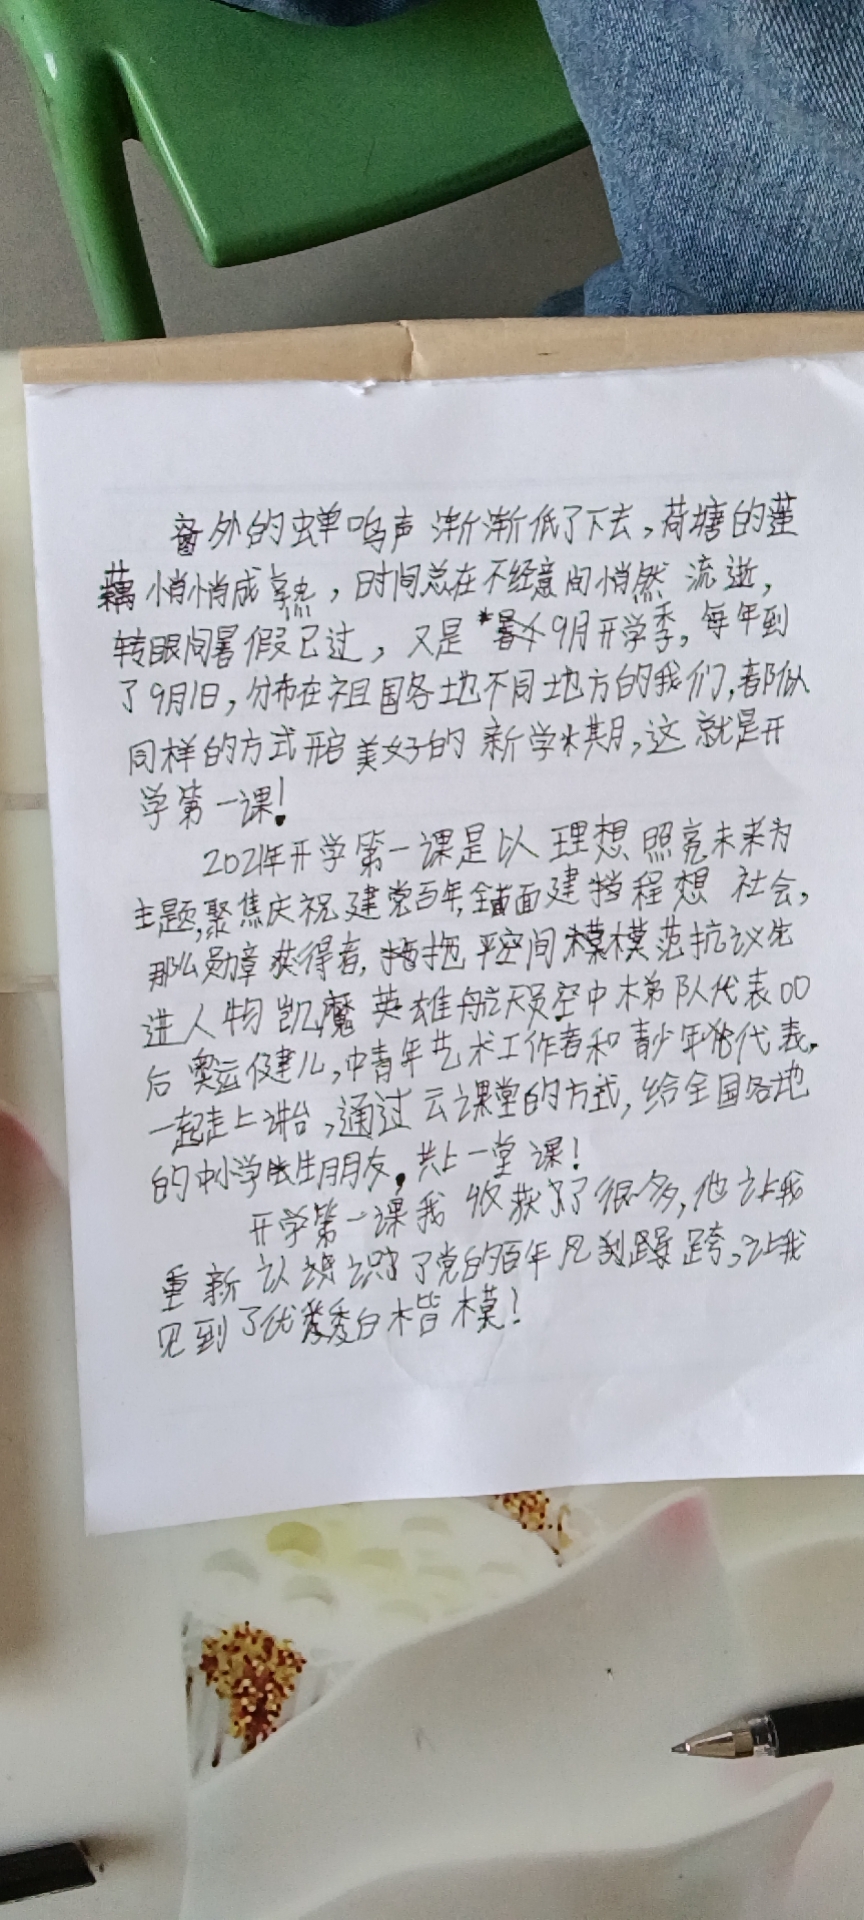 外的蝉鸣声渐渐低了下去，荷塘的莲
藕悄悄成熟，时间总在不经意间悄然流逝，
转眼间暑假已过，又是9月开学季，每年到
了9月1日，分布在祖国各地不同地方的我们，都似
同样的方式开启美好的新学期，这就是开
学第一课！
2021年开学第一课是以理想照亮未来为
主题，聚焦庆祝建党百年，全面建程想社会，
那么勋章获得者，拖平空间模范抗议先
进人物凯魔英雄航天员空中梯队代表00
后奥运健儿，中青年艺术工作者和青少年代表，
一起走上讲台，通过云课堂的方式，给全国各地
的中小学生朋友，共上一堂课！
开学第一课我收获了很多，他让我
重新认识了党的百年跨，让我
见到了优秀白楷模！